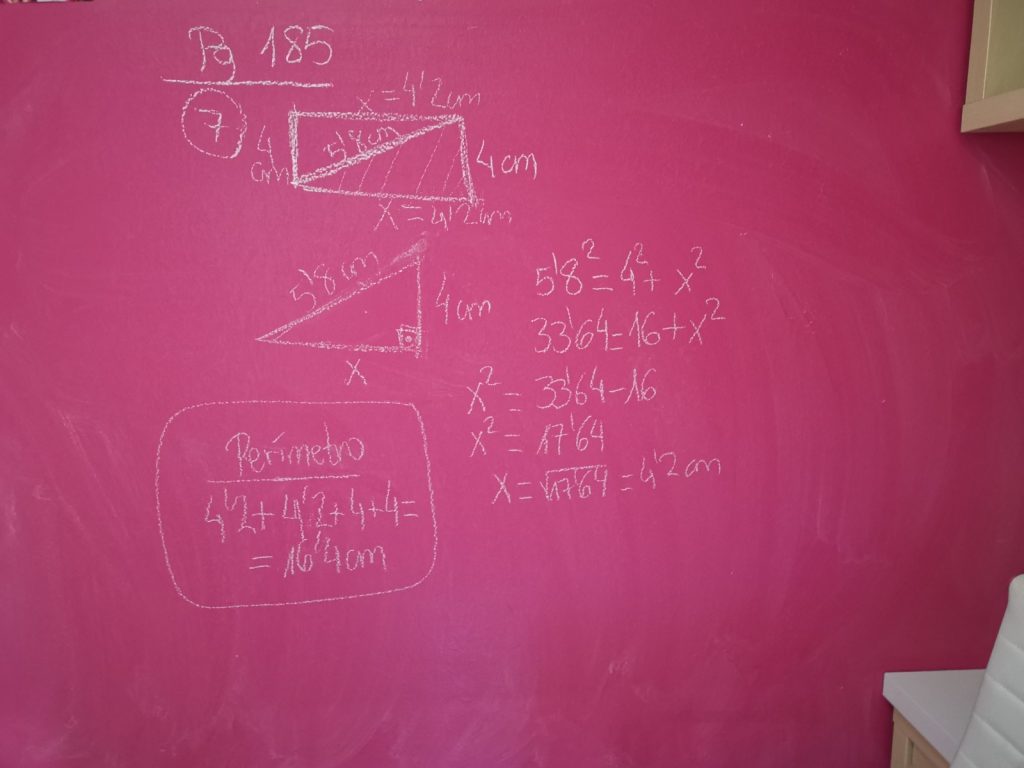 Pg 185
7
x = 4'2 cm
4 cm
5'8 cm
4 cm
x = 4'2 cm
5'8 cm
4 cm
x
5'8² = 4² + x²
33'64 = 16 + x²
x² = 33'64 - 16
x² = 17'64
x = √17'64 = 4'2 cm
Perímetro
4'2 + 4'2 + 4 + 4 =
= 16'4 cm